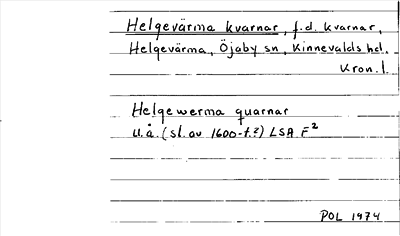 Helgevärma kvarnar, f.d. kvarnar,
Helgevärma, Öjaby sn, Kinnevalds hd.
Kron. l.
Helgewerma quarnar
u.å. (sl. av 1600-t.?) LSA F²
POL 1974